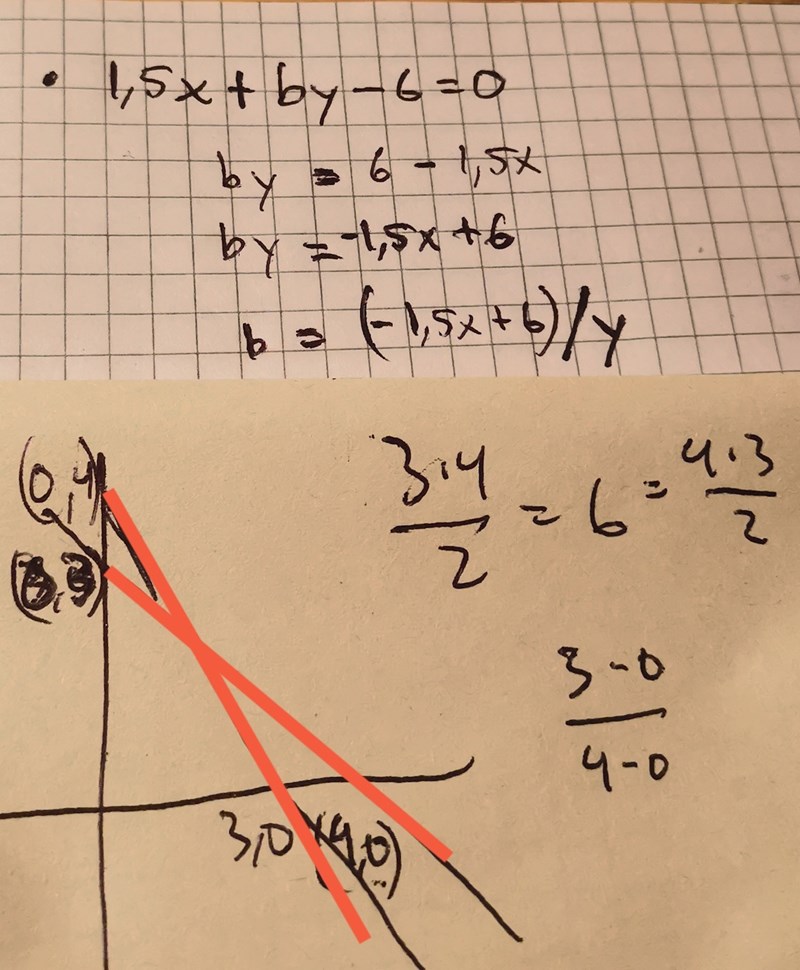 • 1,5x + by - 6 = 0
by = 6 - 1,5x
by = -1,5x + 6
b = (-1,5x + 6)/y
(0,4)
3·4/2 = 6 = 4·3/2
3-0/4-0
3,0 (4,0)